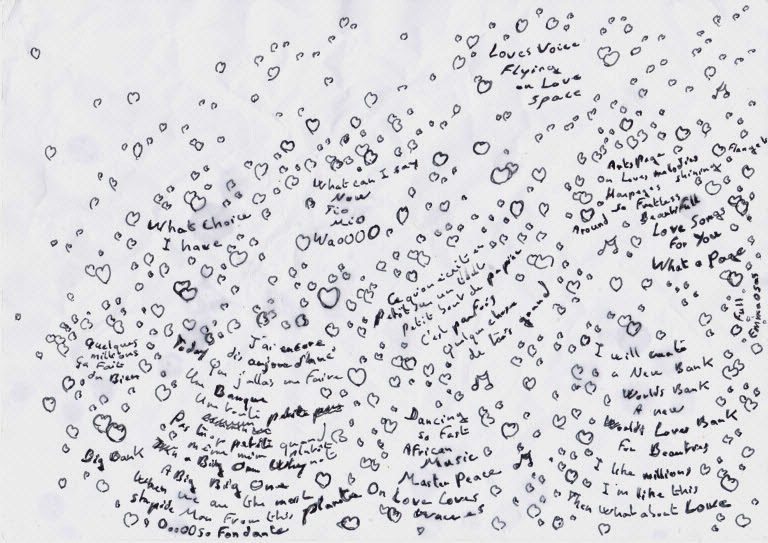 Loves Voice
Flying
on Love
Space
What can I say
Now
Fio
Mio
WaoOOO
What Choice
I have
on Loves melodies
shining
so
Beautifull
Around
Love Songs
For You
What a Page
Full
Ce qu'on écrit
Petit sur un
Petit bout de papier
C'est parfois
quelque chose
de très grand
Quelques
millions
ça Fait
du Bien
J'ai encore
dis aujourd'hui
Que j'allas me Faire
Un Banque
petite
Pas très petite quand
même
Big Bank
a Big One Why not
A Big Big One
When we are the most
stupide Man From this planete
O...OOO so Fondante
Dancing
so Fast
African
Music
Master Peace
On Love Loves
I will create
a New Bank
Worlds Bank
A new
Worlds Loves Bank
For Beauties
I like millions
I'm like this
Then What about Love